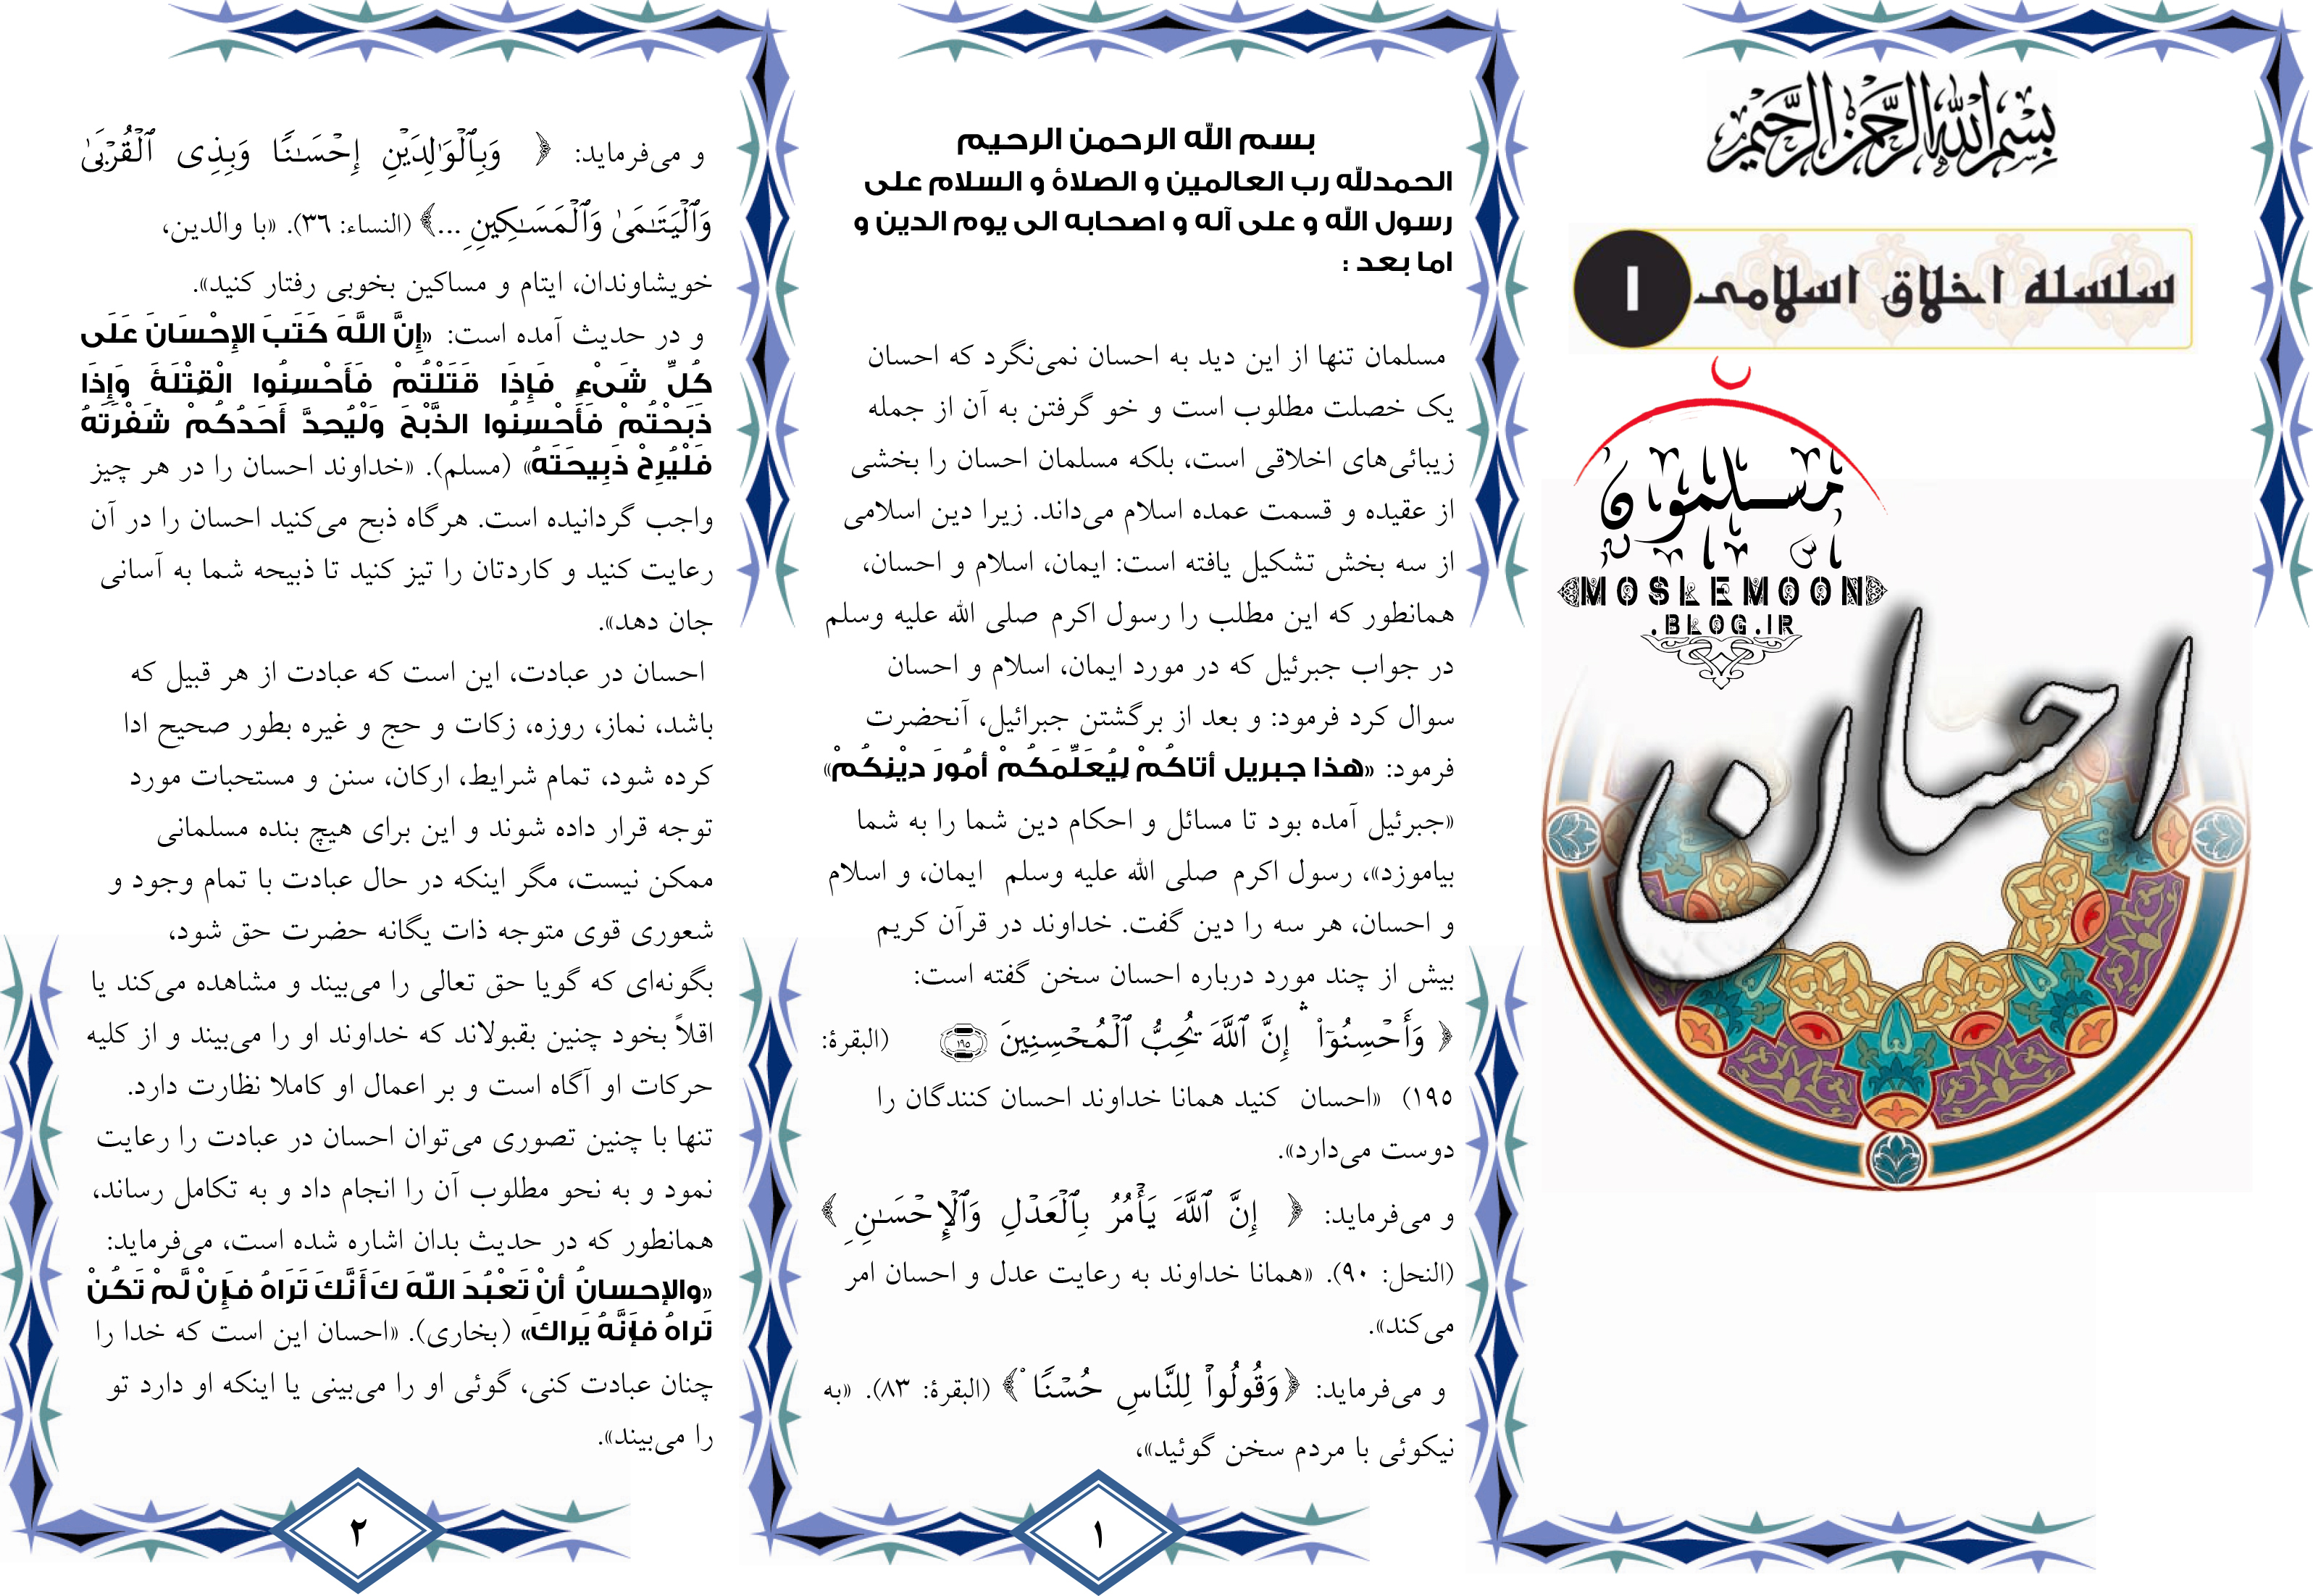 بِسْمِ اللهِ الرَّحْمنِ الرَّحيمِ
سلسله اخلاق اسلامی ۱
مسلمون
MOSLEMOON
.BLOG.IR
احسان
بسم الله الرحمن الرحیم
الحمدلله رب العالمین و الصلاة و السلام علی
رسول الله و علی آله و اصحابه الی یوم الدین و
اما بعد :
مسلمان تنها از این دید به احسان نمی‌نگرد که احسان
یک خصلت مطلوب است و خو گرفتن به آن از جمله
زیبائی‌های اخلاقی است، بلکه مسلمان احسان را بخشی
از عقیده و قسمت عمده اسلام می‌داند. زیرا دین اسلامی
از سه بخش تشکیل یافته است: ایمان، اسلام و احسان،
همانطور که این مطلب را رسول اکرم صلی الله علیه وسلم
در جواب جبرئیل که در مورد ایمان، اسلام و احسان
سوال کرد فرمود: و بعد از برگشتن جبرائیل، آنحضرت
فرمود: «هذا جبریل أتاکُمْ لِیُعَلِّمَکُمْ أمُورَ دیْنِکُمْ»
«جبرئیل آمده بود تا مسائل و احکام دین شما را به شما
بیاموزد»، رسول اکرم صلی الله علیه وسلم ایمان، و اسلام
و احسان، هر سه را دین گفت. خداوند در قرآن کریم
بیش از چند مورد درباره احسان سخن گفته است:
﴿ وَأَحْسِنُوٓا۟ ۛ إِنَّ ٱللَّهَ يُحِبُّ ٱلْمُحْسِنِينَ ۝١٩٥ (البقرة:
١٩٥) «احسان کنید همانا خداوند احسان کنندگان را
دوست می‌دارد».
و می‌فرماید: ﴿ إِنَّ ٱللَّهَ يَأْمُرُ بِٱلْعَدْلِ وَٱلْإِحْسَـٰنِ ﴾
(النحل: ٩٠). «همانا خداوند به رعایت عدل و احسان امر
می‌کند».
و می‌فرماید: ﴿وَقُولُوا۟ لِلنَّاسِ حُسْنًا ﴾ (البقرة: ٨٣). «به
نیکوئی با مردم سخن گوئید»،
١
و می‌فرماید: ﴿ وَبِٱلْوَٰلِدَيْنِ إِحْسَـٰنًا وَبِذِى ٱلْقُرْبَىٰ
وَٱلْيَتَـٰمَىٰ وَٱلْمَسَـٰكِينِ ...﴾ (النساء: ٣٦). «با والدین،
خویشاوندان، ایتام و مساکین بخوبی رفتار کنید».
و در حدیث آمده است: «إِنَّ اللَّهَ كَتَبَ الإِحْسَانَ عَلَى
كُلِّ شَىْءٍ فَإِذَا قَتَلْتُمْ فَأَحْسِنُوا الْقِتْلَةَ وَإِذَا
ذَبَحْتُمْ فَأَحْسِنُوا الذَّبْحَ وَلْيُحِدَّ أَحَدُكُمْ شَفْرَتَهُ
فَلْيُرِحْ ذَبِيحَتَهُ» (مسلم). «خداوند احسان را در هر چیز
واجب گردانیده است. هرگاه ذبح می‌کنید احسان را در آن
رعایت کنید و کاردتان را تیز کنید تا ذبیحه شما به آسانی
جان دهد».
احسان در عبادت، این است که عبادت از هر قبیل که
باشد، نماز، روزه، زکات و حج و غیره بطور صحیح ادا
کرده شود، تمام شرایط، ارکان، سنن و مستحبات مورد
توجه قرار داده شوند و این برای هیچ بنده مسلمانی
ممکن نیست، مگر اینکه در حال عبادت با تمام وجود و
شعوری قوی متوجه ذات یگانه حضرت حق شود،
بگونه‌ای که گویا حق تعالی را می‌بیند و مشاهده می‌کند یا
اقلاً بخود چنین بقبولاند که خداوند او را می‌بیند و از کلیه
حرکات او آگاه است و بر اعمال او کاملا نظارت دارد.
تنها با چنین تصوری می‌توان احسان در عبادت را رعایت
نمود و به نحو مطلوب آن را انجام داد و به تکامل رساند،
همانطور که در حدیث بدان اشاره شده است، می‌فرماید:
«والإحسانُ أنْ تَعْبُدَ اللّهَ كَأَنَّكَ تَرَاهُ فَإِنْ لَّمْ تَكُنْ
تَراهُ فَإَنَّهُ يَراكَ» (بخاری). «احسان این است که خدا را
چنان عبادت کنی، گوئی او را می‌بینی یا اینکه او دارد تو
را می‌بیند».
٢